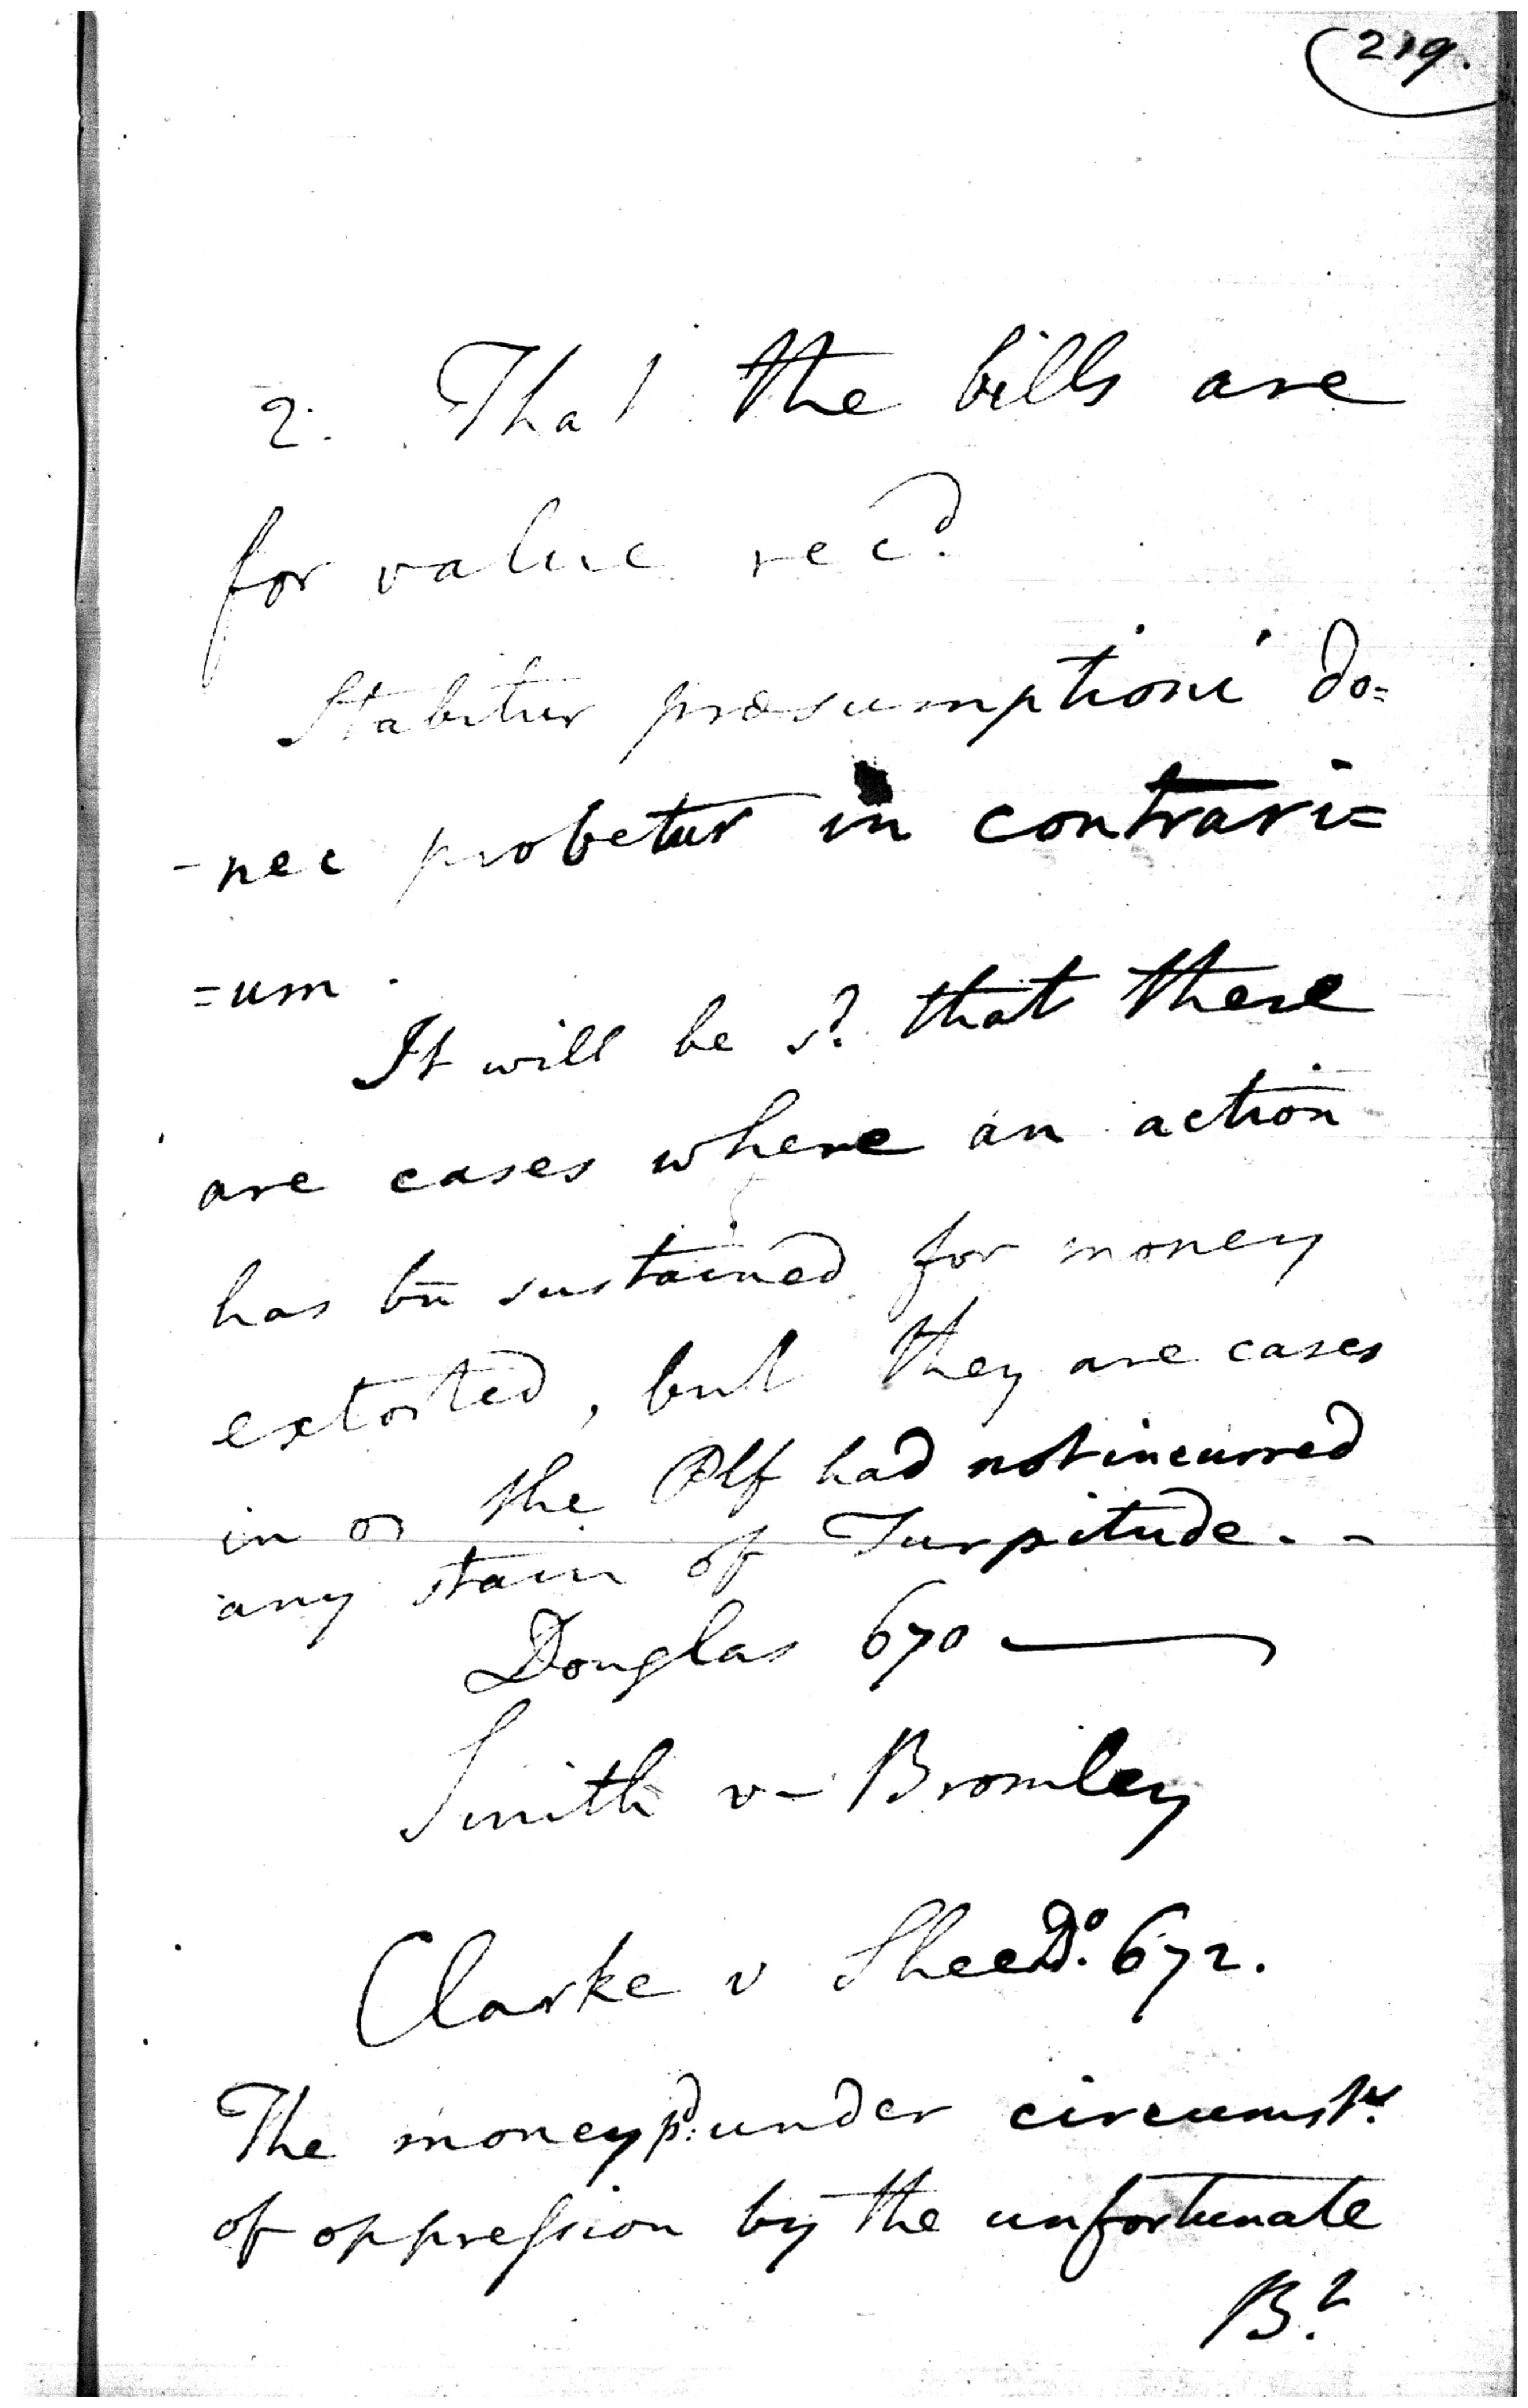 219.
2. That the bills are
for value rec^d.
Stabitur præsumptioni do=
-nec probetur in contrari=
=um.
It will be s^d. that there
are cases where an action
has bn̄ sustained for money
extorted, but they are cases
in the Plf had not incurred
any stain of Turpitude. -
Douglas 670
Smith v- Bromley
Clarke v Shee D^o. 672.
The money p^d. under circumst^s.
of oppression by the unfortunate